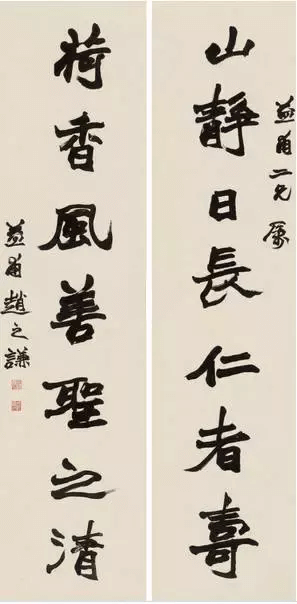 益甫二兄屬
山靜日長仁者壽
荷香風善聖之清
益甫趙之謙